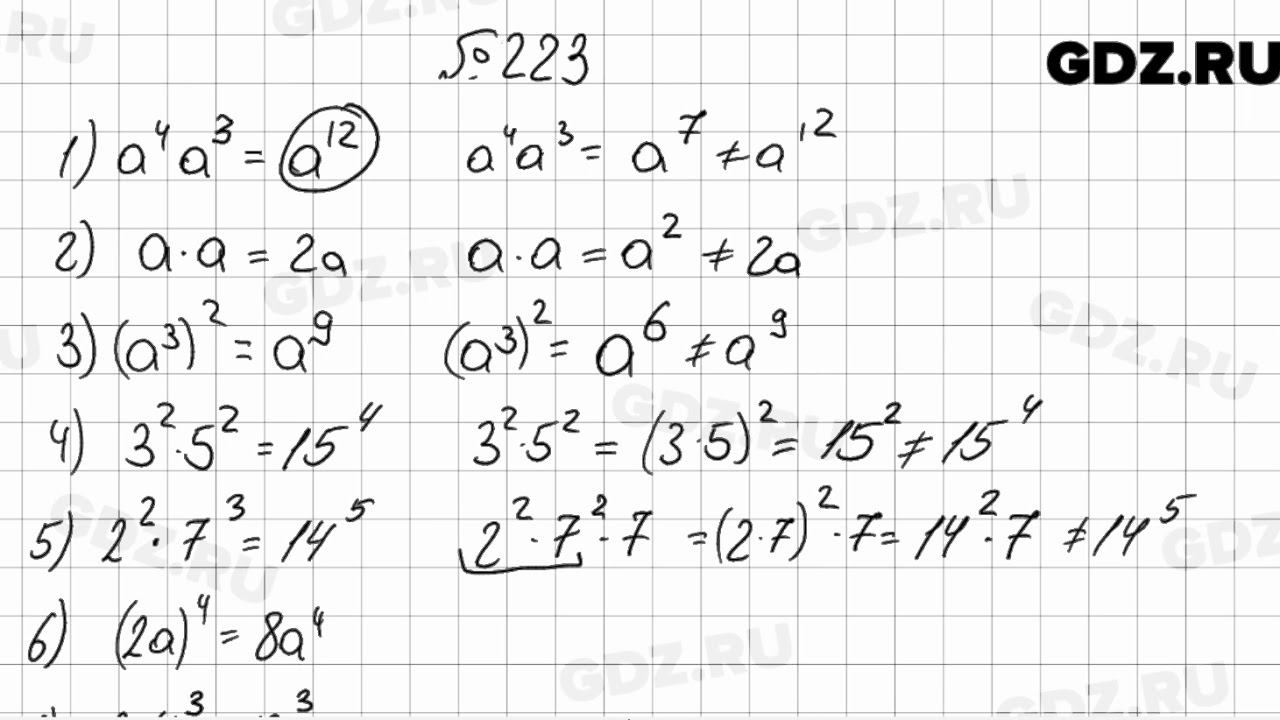 №223
GDZ.RU
1) a⁴a³ = a¹² a⁴a³ = a⁷ ≠ a¹²
2) a·a = 2a a·a = a² ≠ 2a
3) (a³)² = a⁹ (a³)² = a⁶ ≠ a⁹
4) 3²·5² = 15⁴ 3²·5² = (3·5)² = 15² ≠ 15⁴
5) 2²·7³ = 14⁵ 2²·7²·7 = (2·7)²·7 = 14²·7 ≠ 14⁵
6) (2a)⁴ = 8a⁴